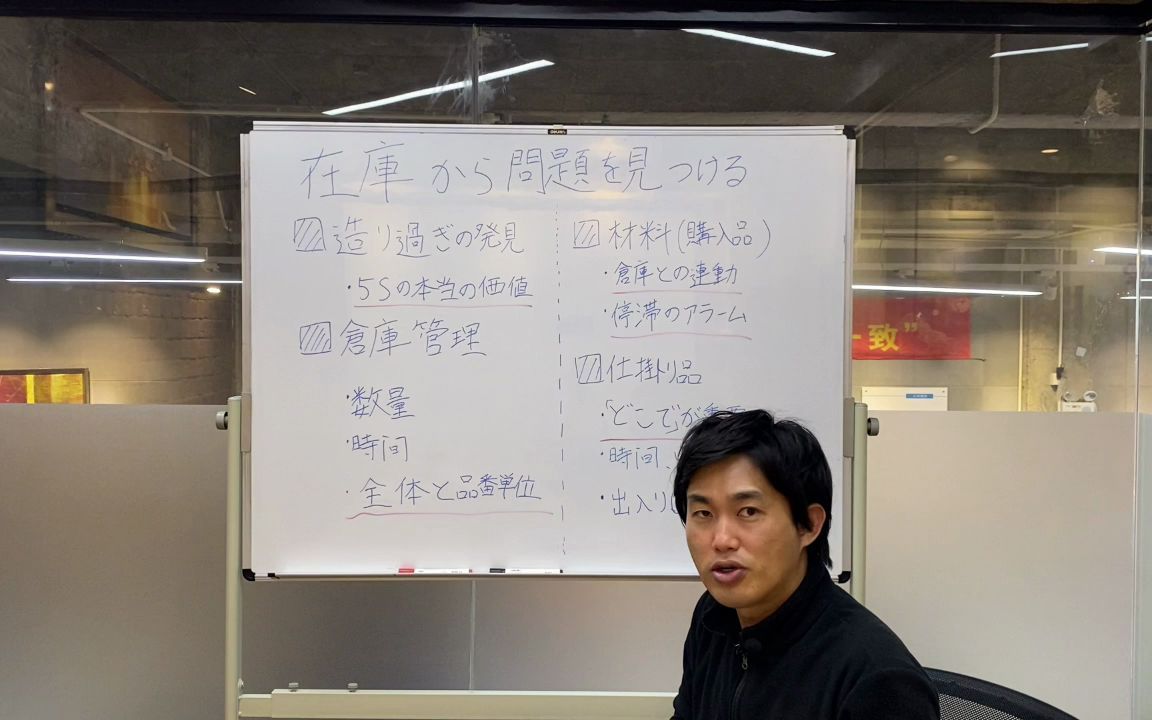 在庫から問題を見つける
造り過ぎの発見
・5Sの本当の価値
倉庫管理
・数量
・時間
・全体と品番単位
材料(購入品)
・倉庫との連動
・停滞のアラーム
仕掛り品
・「どこで」が重要
・時間、
・出入り
deli
致”